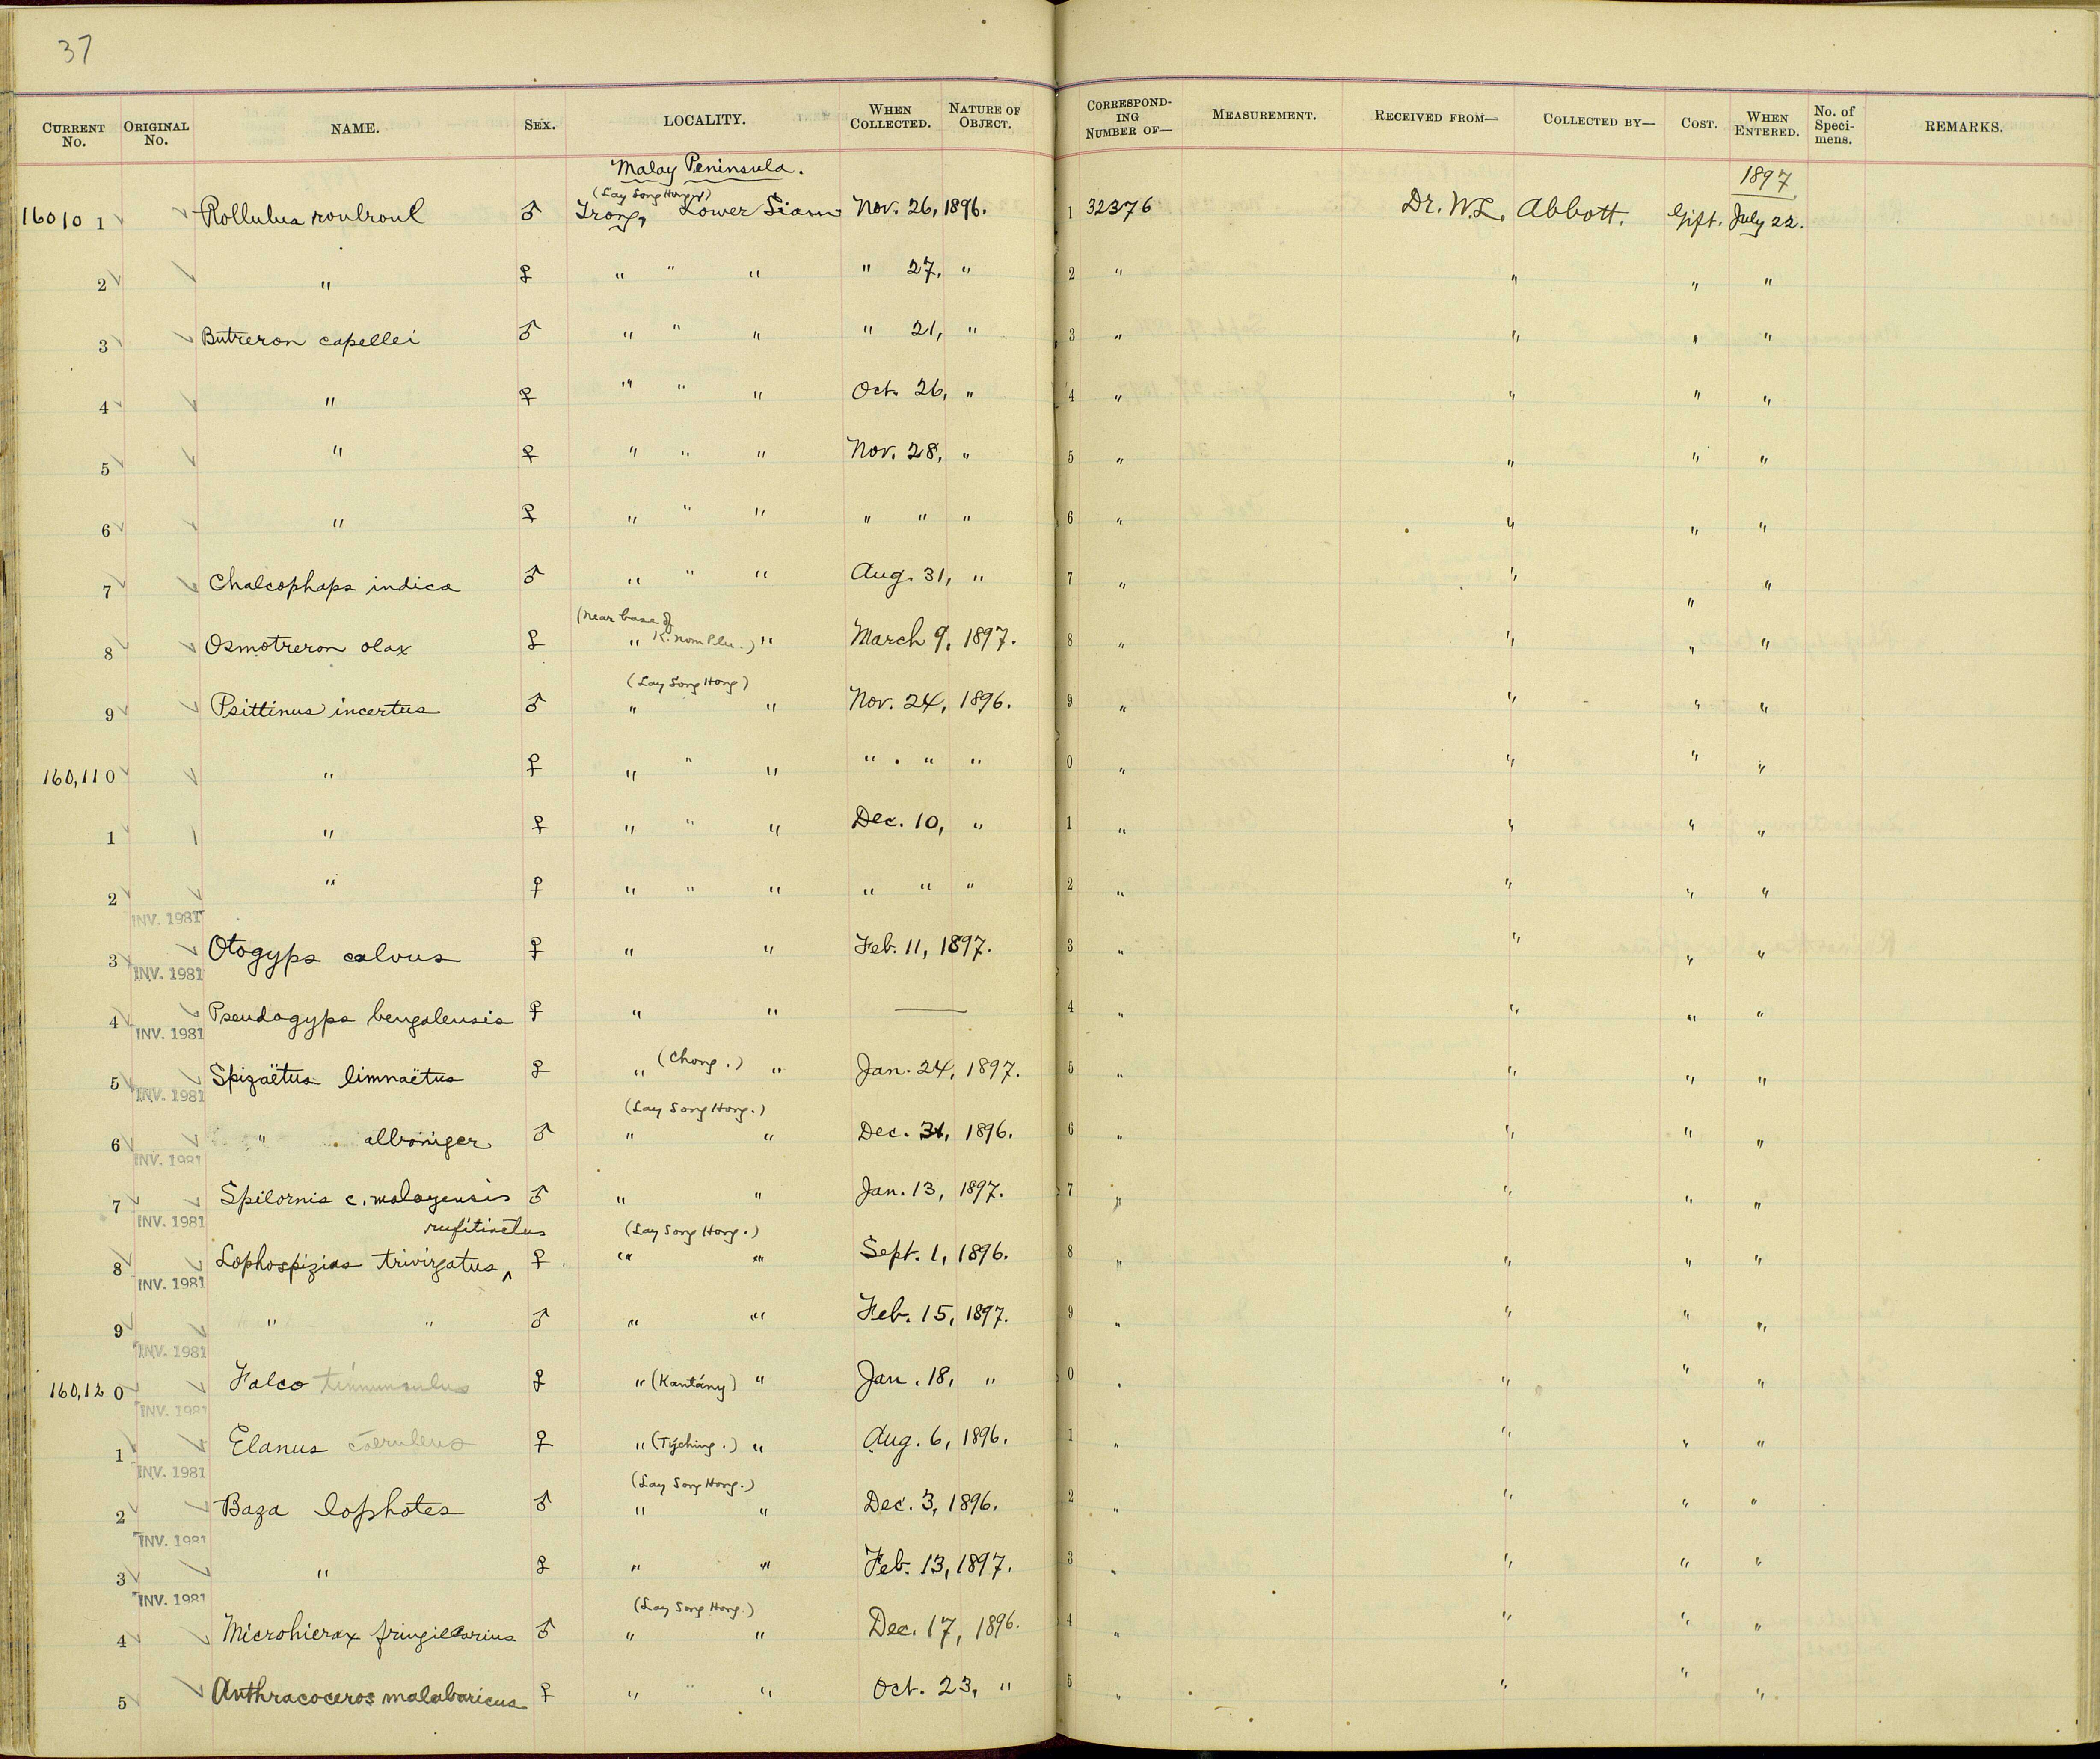 37
CURRENT No. ORIGINAL No. NAME. SEX. LOCALITY. WHEN COLLECTED. NATURE OF OBJECT. CORRESPONDING NUMBER OF— MEASUREMENT. RECEIVED FROM— COLLECTED BY— COST. WHEN ENTERED. No. of Specimens. REMARKS.
Malay Peninsula.
1897
(Lay Song Hong)
16010 1 Rollulus roulroul ♂ Trong, Lower Siam Nov. 26, 1896. 1 32376 Dr. W. L. Abbott. Gift. July 22.
2 " ♀ " " " " 27, " 2 " " " "
3 Butreron capellei ♂ " " " " 21, " 3 " " " "
4 " ♀ " " " Oct. 26, " 4 " " " "
5 " ♀ " " " Nov. 28, " 5 " " " "
6 " ♀ " " " " " " 6 " " " "
7 Chalcophaps indica ♂ " " " Aug. 31, " 7 " " " "
(near base of
8 Osmotreron olax ♀ " K. nom Plu.) " March 9, 1897. 8 " " " "
(Lay Song Hong)
9 Psittinus incertus ♂ " " Nov. 24, 1896. 9 " " " "
160,11 0 " ♀ " " " " " " 0 " " " "
1 " ♀ " " " Dec. 10, " 1 " " " "
2 " ♀ " " " " " " 2 " " " "
INV. 1981
3 Otogyps calvus ♀ " " Feb. 11, 1897. 3 " " " "
INV. 1981
4 Pseudogyps bengalensis ♀ " " — 4 " " " "
INV. 1981
5 Spizaëtus limnaëtus ♀ " (Chong.) " Jan. 24, 1897. 5 " " " "
INV. 1981
(Lay Song Hong.)
6 " alboniger ♂ " " Dec. 31, 1896. 6 " " " "
INV. 1981
7 Spilornis c. malayensis ♂ " " Jan. 13, 1897. 7 " " " "
INV. 1981
rufitinctus (Lay Song Hong.)
8 Lophospizias trivirgatus ‸ ♀ " " Sept. 1, 1896. 8 " " " "
INV. 1981
9 " " ♂ " " Feb. 15, 1897. 9 " " " "
INV. 1981
160,12 0 Falco tinnunculus ♀ " (Kantány) " Jan. 18, " 0 " " " "
INV. 1981
1 Elanus caeruleus ♀ " (Tyching.) " Aug. 6, 1896. 1 " " " "
INV. 1981
(Lay Song Hong.)
2 Baza lophotes ♂ " " Dec. 3, 1896. 2 " " " "
INV. 1981
3 " ♀ " " Feb. 13, 1897. 3 " " " "
INV. 1981
(Lay Song Hong.)
4 Microhierax fringillarius ♂ " " Dec. 17, 1896. 4 " " " "
5 Anthracoceros malabaricus ♀ " " " Oct. 23, " 5 " " " "